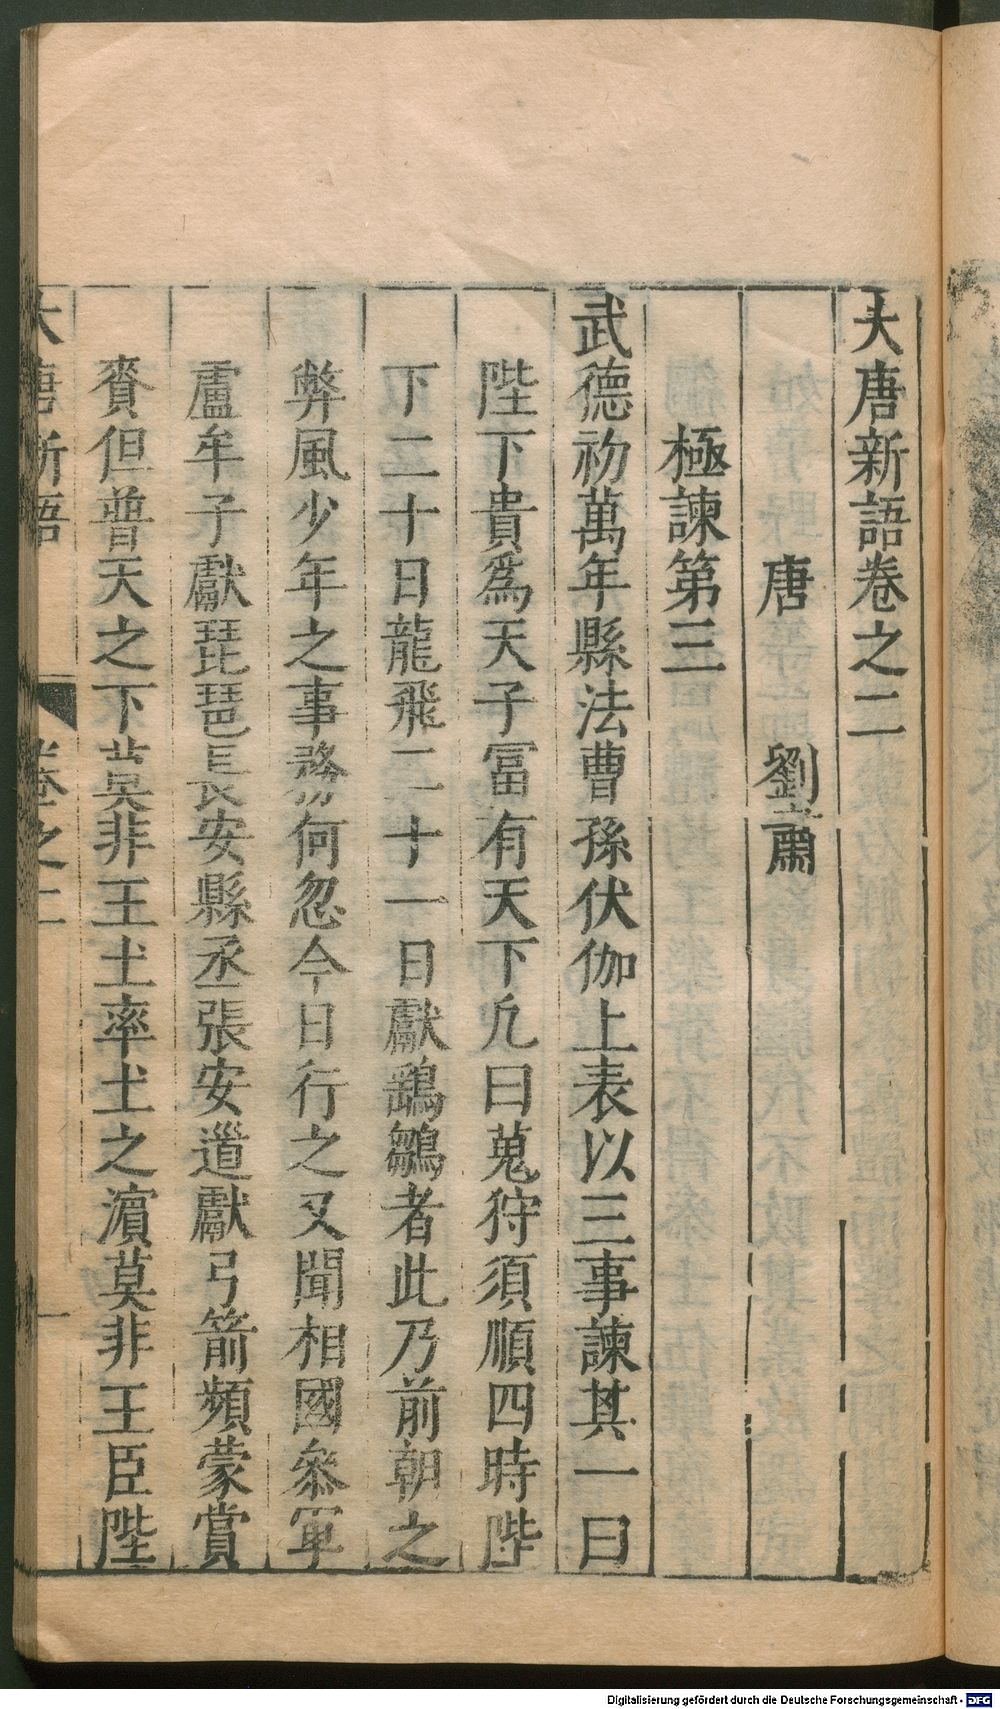 大唐新語卷之二
唐 劉肅
極諫第三
武德初萬年縣法曹孫伏伽上表以三事諫其一曰
陛下貴爲天子富有天下凢曰蒐狩須順四時陛
下二十日龍飛二十一日獻鷂鶵者此乃前朝之
弊風少年之事務何忽今日行之又聞相國叅軍
盧牟子獻琵琶長安縣丞張安道獻弓箭頻蒙賞
賚但普天之下莫非王土率土之濵莫非王臣陛
大唐新語 卷之二 一
Digitalisierung gefördert durch die Deutsche Forschungsgemeinschaft - DFG